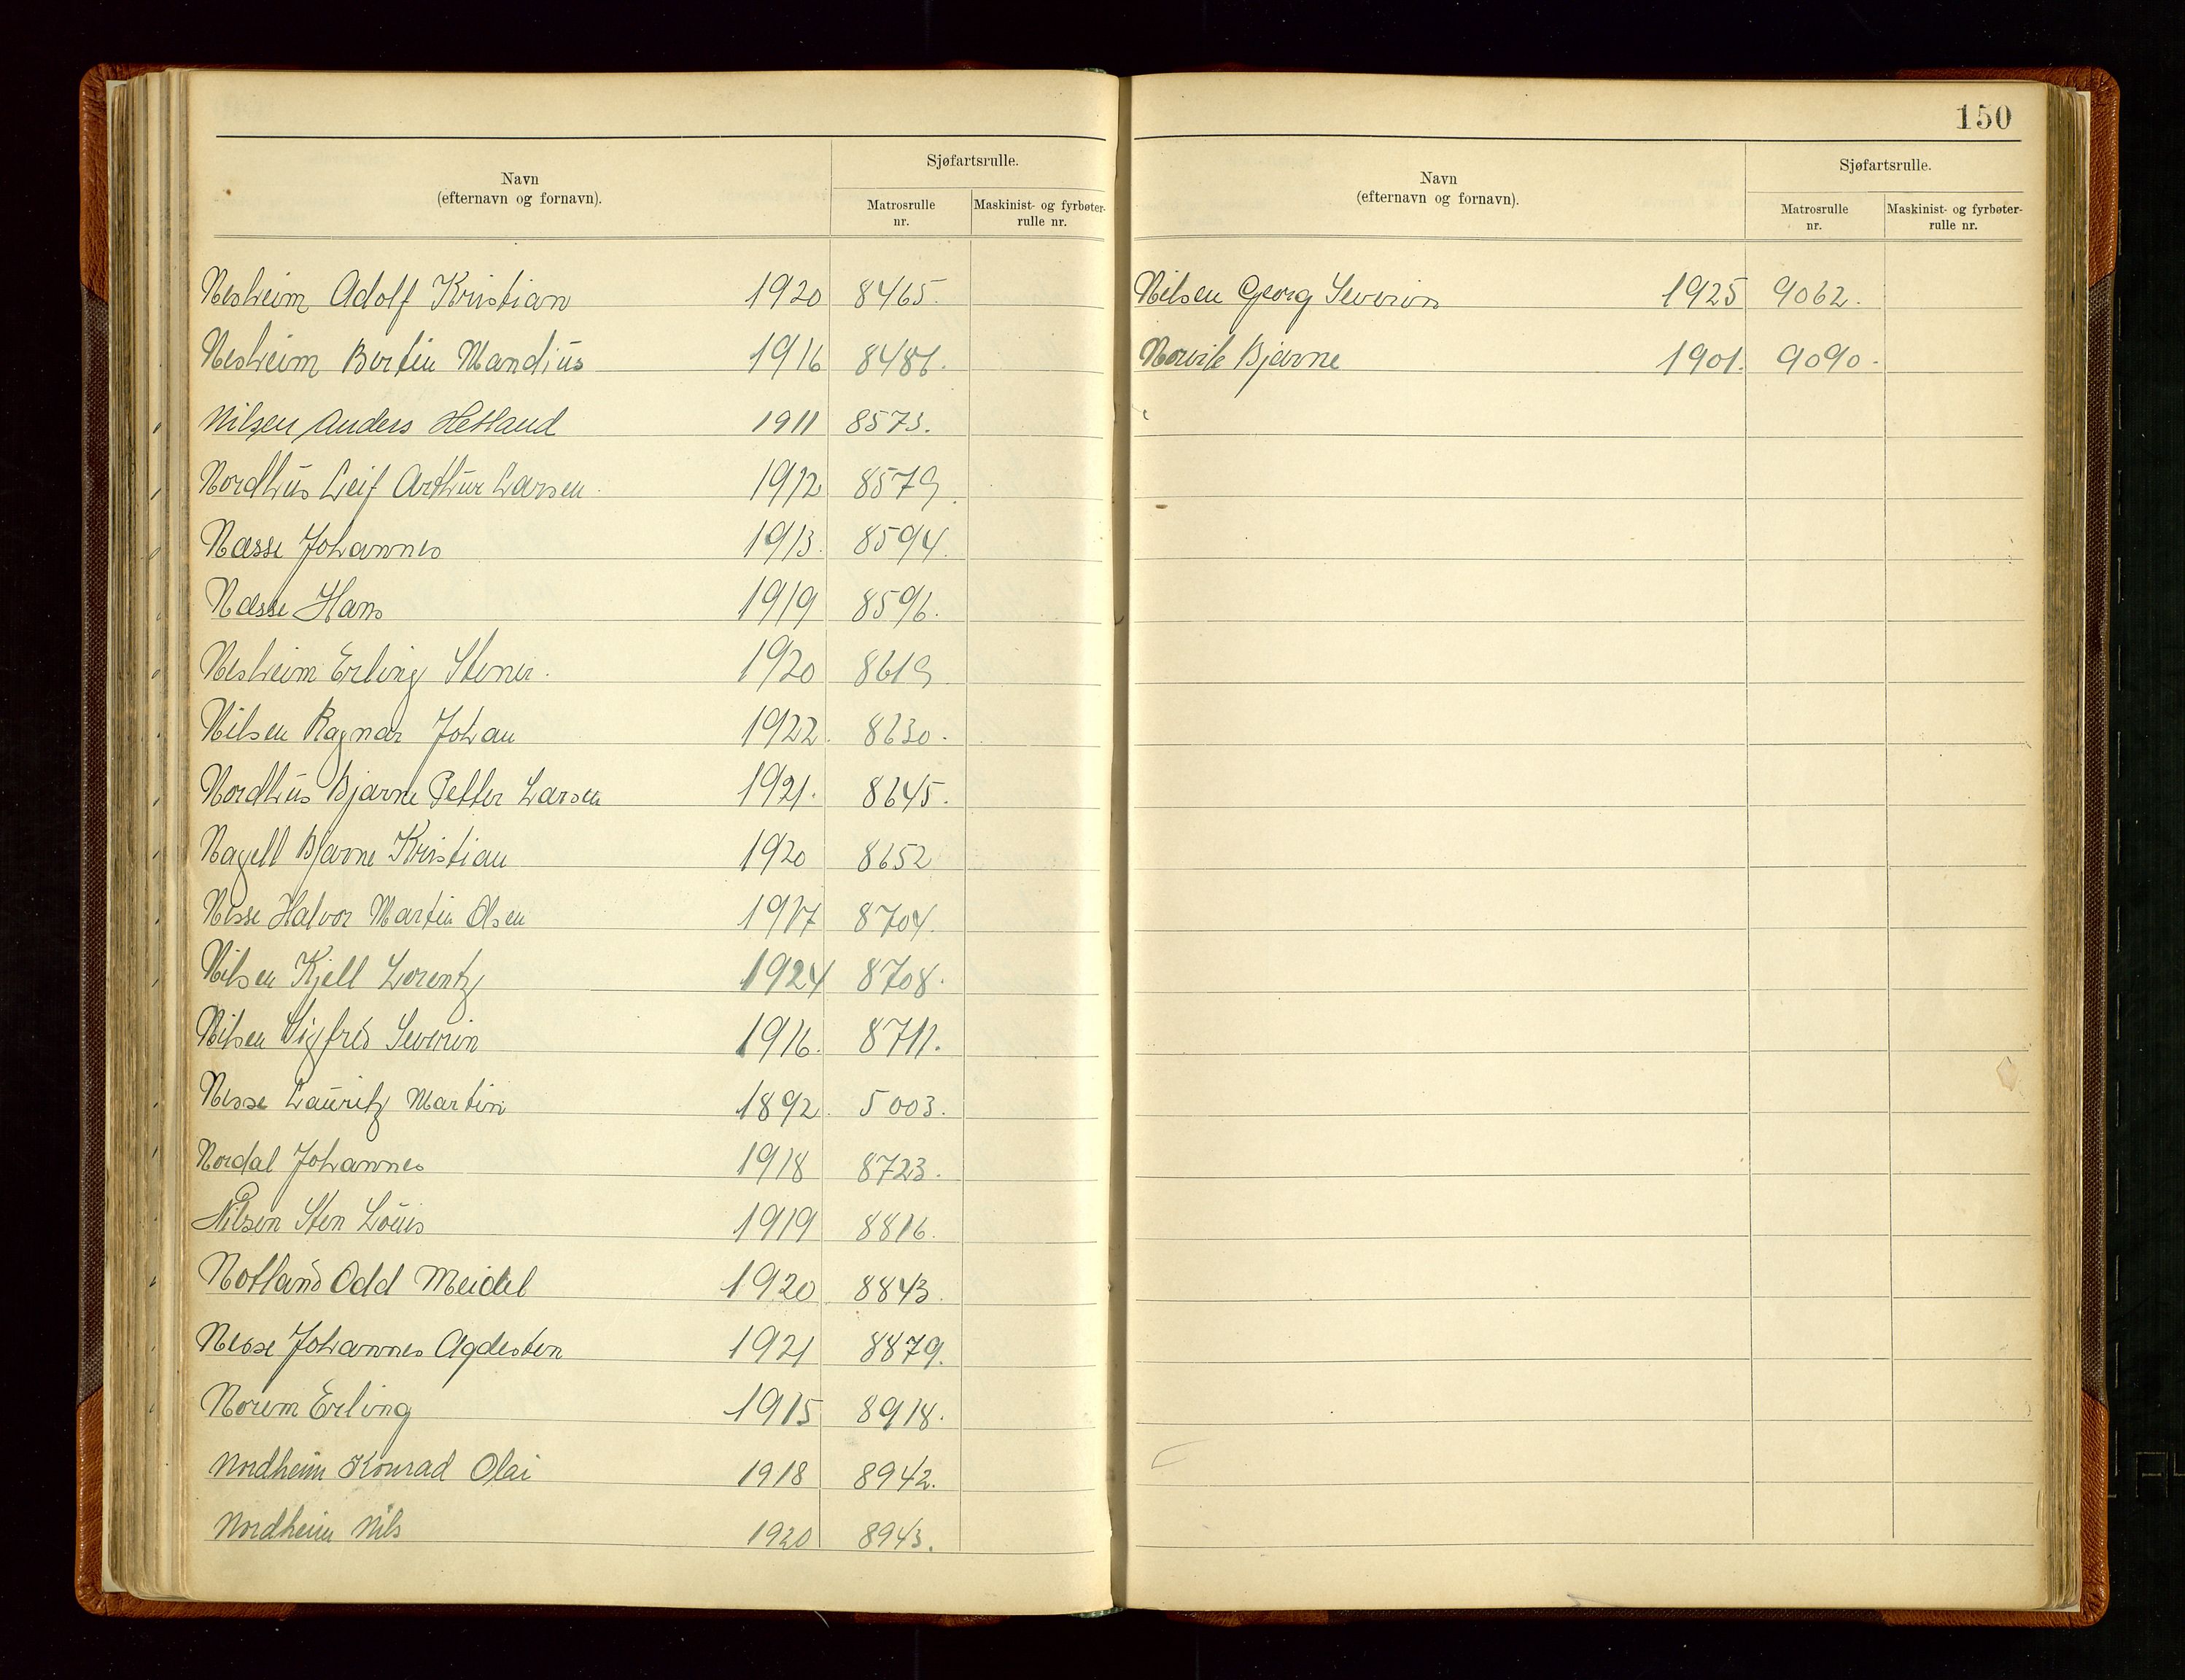 150
Navn
(efternavn og fornavn).
Sjøfartsrulle.
Matrosrulle
nr.
Maskinist- og fyrbøter-
rulle nr.
Nesheim Adolf Kristian 1920 8465.
Nesheim Bertin Mandius 1916 8486.
Nilsen Anders Hetland 1911 8573.
Nordhus Leif Arthur Larsen. 1912 8579.
Næsse Johannes 1913. 8594.
Næsse Hans 1919 8596.
Nesheim Erling Stener. 1920 8619
Nilsen Ragnar Johan 1922. 8630.
Nordhus Bjarne Petter Larsen 1921. 8645.
Nagell Bjarne Kristian 1920 8652
Nesse Halvor Martin Olsen 1917 8704.
Nilsen Kjell Lorentz 1924 8708.
Nilsen Sigfred Severin 1916. 8711.
Nesse Lauritz Martin 1892. 5003.
Nordal Johannes 1918 8723.
Nilsen Sten Louis 1919 8816.
Notland Odd Meidel 1920 8843.
Nesse Johannes Agdesten 1921 8879.
Norem Erling 1915 8918.
Nordheim Konrad Olai 1918 8942.
Nordheim Nils 1920 8943.
Navn
(efternavn og fornavn).
Sjøfartsrulle.
Matrosrulle
nr.
Maskinist- og fyrbøter-
rulle nr.
Nilsen Georg Severin 1925 9062.
Bjarne 1901. 9090.